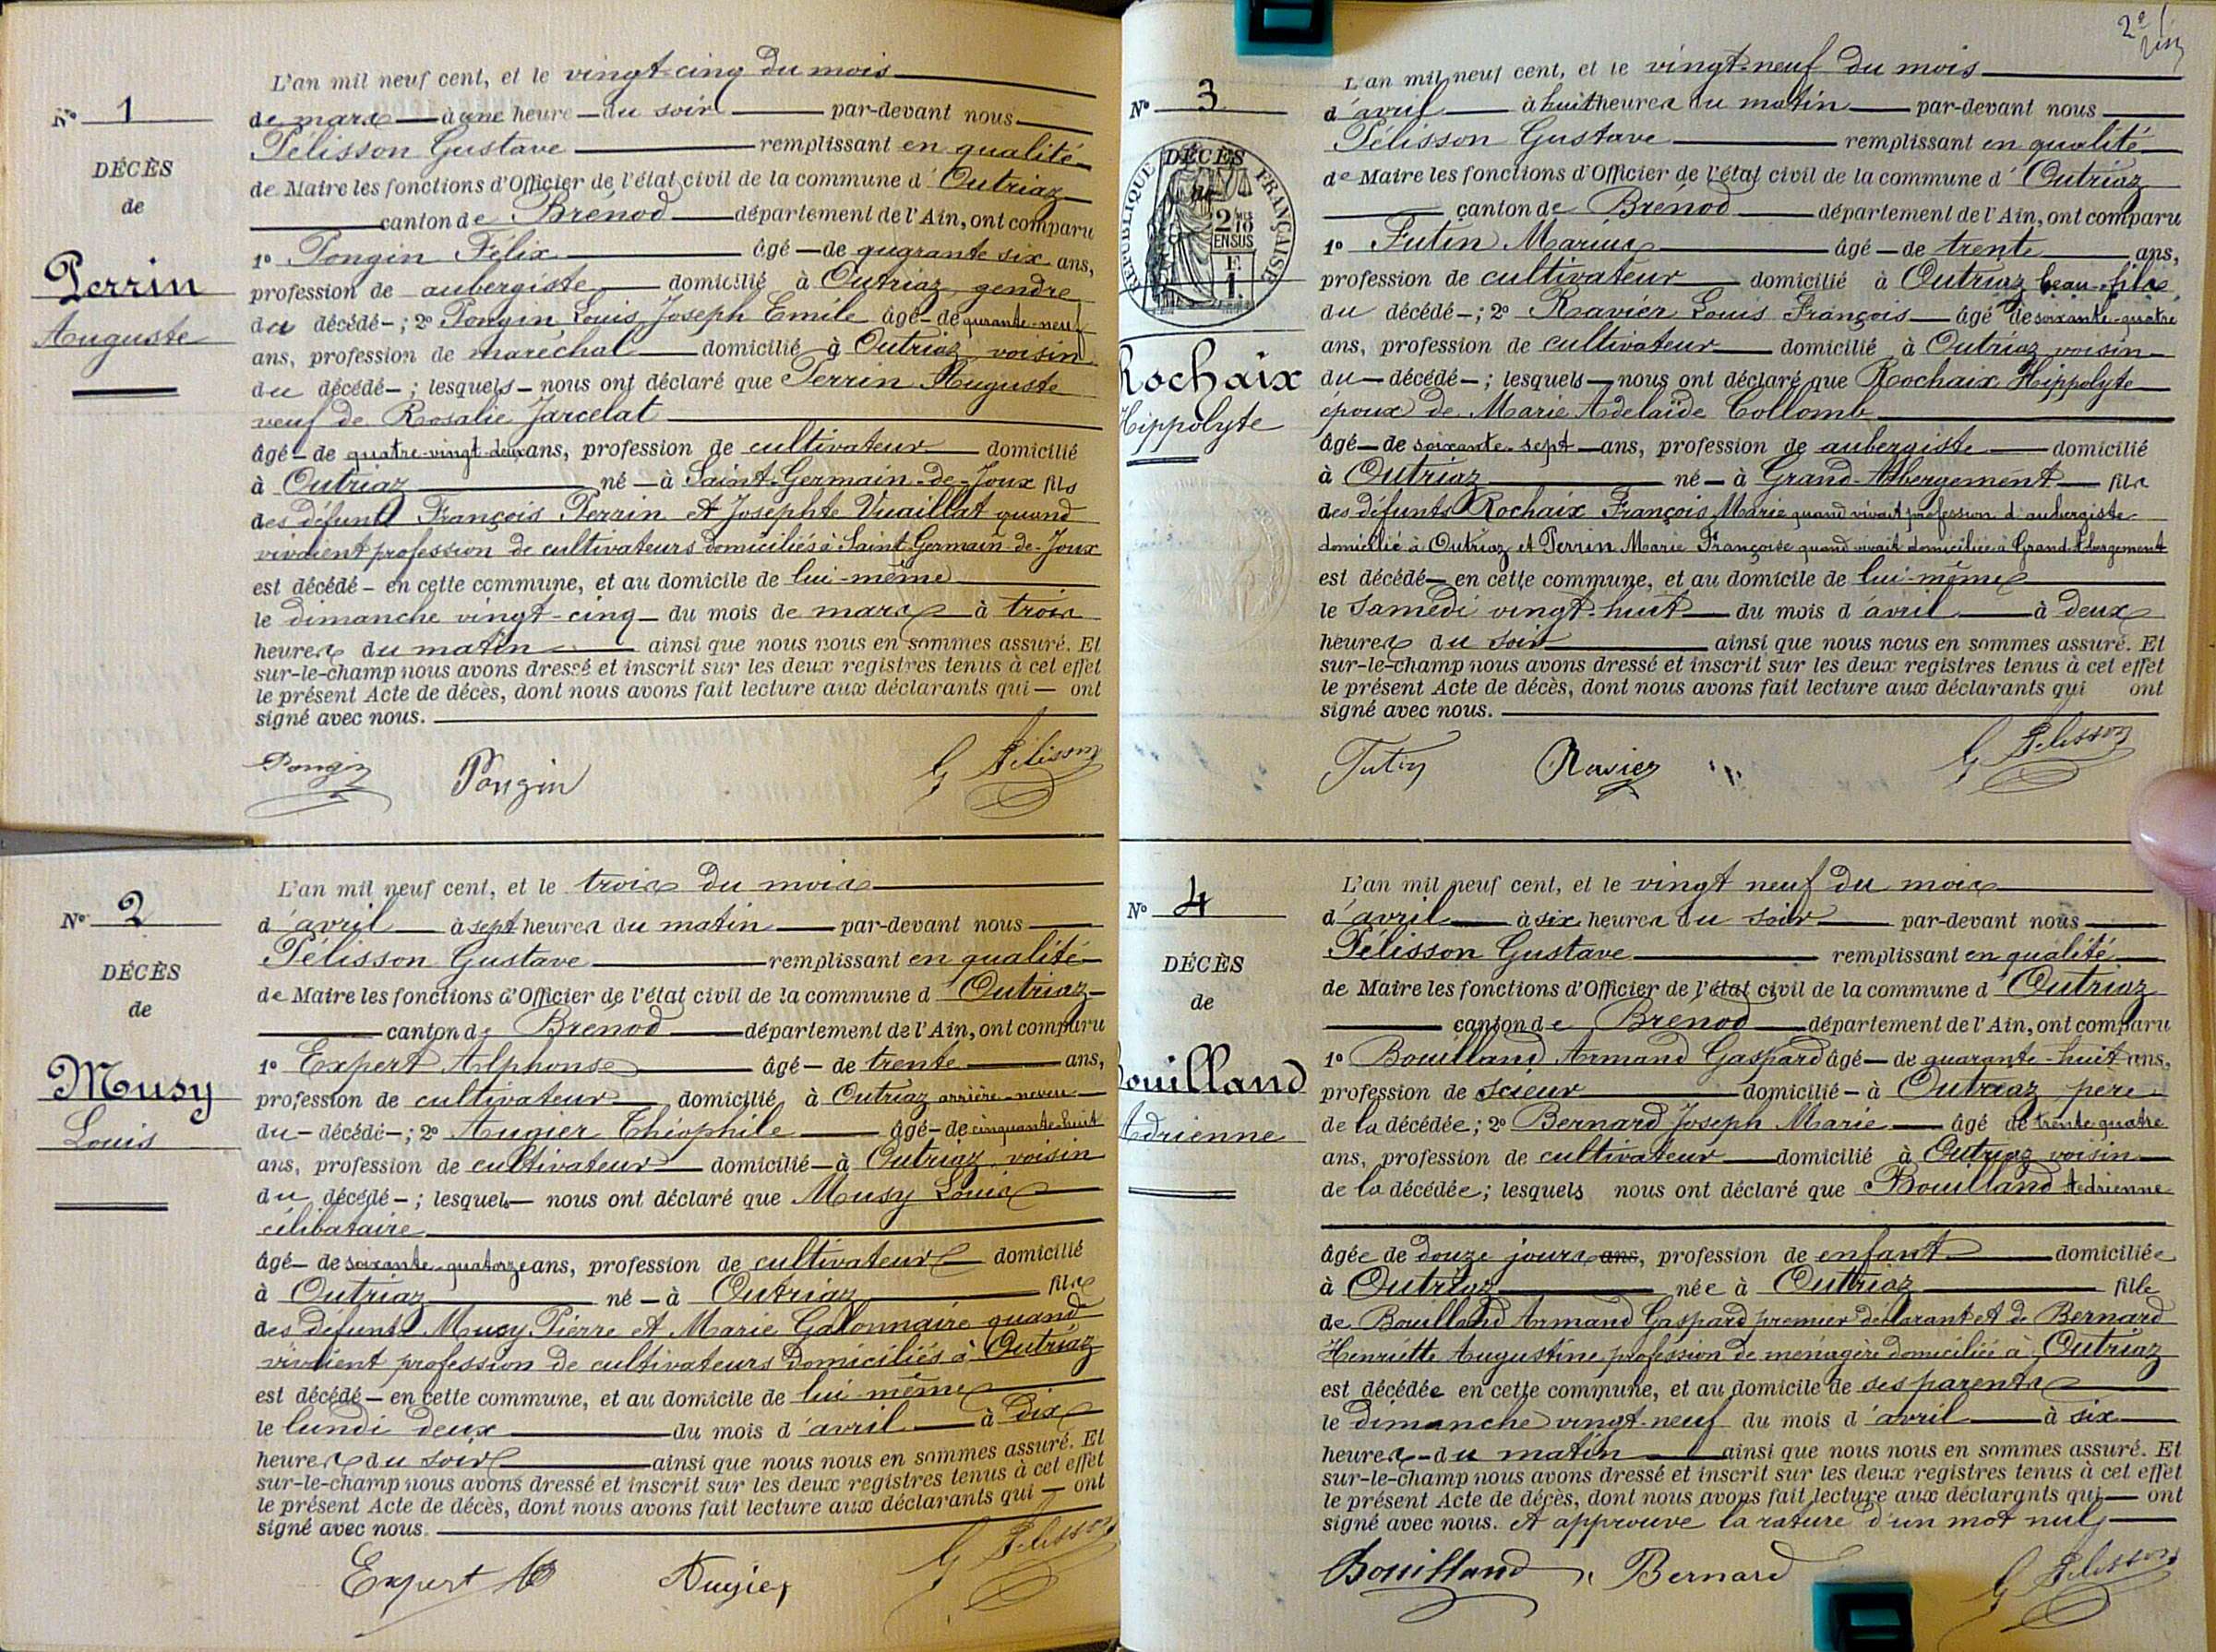 L'an mil neuf cent, et le vingt-cinq du mois
N° 1
de mars à une heure du soir par-devant nous
Pélisson Gustave remplissant en qualité
DÉCÈS
de Maire les fonctions d'Officier de l'état civil de la commune d'Outriaz
de
canton de Brénod département de l'Ain, ont comparu
1° Pongin Félix âgé de quarante six ans,
Perrin
profession de aubergiste domicilié à Outriaz gendre
Auguste
du décédé ; 2° Pongin Louis Joseph Emile âgé de qurante-neuf
ans, profession de maréchal domicilié à Outriaz voisin
du décédé ; lesquels nous ont déclaré que Perrin Auguste
veuf de Rosalie Jarcelat
âgé de quatre-vingt-deux ans, profession de cultivateur domicilié
à Outriaz né à Saint-Germain-de-Joux fils
des défunts François Perrin et Josephte Vuaillat quand
vivaient profession de cultivateurs domiciliés à Saint Germain-de-Joux
est décédé en cette commune, et au domicile de lui-même
le dimanche vingt-cinq du mois de mars à trois
heures du matin ainsi que nous nous en sommes assuré. Et
sur-le-champ nous avons dressé et inscrit sur les deux registres tenus à cet effet
le présent Acte de décès, dont nous avons fait lecture aux déclarants qui ont
signé avec nous.
Pongin Pongin G Pélisson
L'an mil neuf cent, et le trois du mois
N° 2
d'avril à sept heures du matin par-devant nous
Pélisson Gustave remplissant en qualité
DÉCÈS
de Maire les fonctions d'Officier de l'état civil de la commune d'Outriaz
de
canton de Brénod département de l'Ain, ont comparu
1° Expert Alphonse âgé de trente ans,
Musy
profession de cultivateur domicilié à Outriaz arrière-neveu
Louis
du décédé ; 2° Augier Théophile âgé de cinquante-huit
ans, profession de cultivateur domicilié à Outriaz voisin
du décédé ; lesquels nous ont déclaré que Musy Louis
célibataire
âgé de soixante-quatorze ans, profession de cultivateur domicilié
à Outriaz né à Outriaz fils
des défunts Musy Pierre et Marie Galonnaire quand
vivaient profession de cultivateurs domiciliés à Outriaz
est décédé en cette commune, et au domicile de lui-même
le lundi deux du mois d'avril à dix
heures du soir ainsi que nous nous en sommes assuré. Et
sur-le-champ nous avons dressé et inscrit sur les deux registres tenus à cet effet
le présent Acte de décès, dont nous avons fait lecture aux déclarants qui ont
signé avec nous.
Expert Augier G Pélisson
2e
L'an mil neuf cent, et le vingt-neuf du mois
N° 3
d'avril à huit heures du matin par-devant nous
Pélisson Gustave remplissant en qualité
DÉCÈS
de
RÉPUBLIQUE FRANÇAISE
2/10 EN SUS
de Maire les fonctions d'Officier de l'état civil de la commune d'Outriaz
canton de Brénod département de l'Ain, ont comparu
1° Futin Marius âgé de trente ans,
profession de cultivateur domicilié à Outriaz beau-fils
du décédé ; 2° Ravier Louis François âgé de soixante-quatre
ans, profession de cultivateur domicilié à Outriaz voisin
Rochaix
du décédé ; lesquels nous ont déclaré que Rochaix Hippolyte
Hippolyte
époux de Marie Adelaïde Collomb
âgé de soixante-sept ans, profession de aubergiste domicilié
à Outriaz né à Grand-Abergement fils
des défunts Rochaix François Marie quand vivait profession d'aubergiste
domicilié à Outriaz et Perrin Marie Françoise quand vivait domiciliée à Grand Abergement
est décédé en cette commune, et au domicile de lui-même
le samedi vingt-huit du mois d'avril à deux
heures du soir ainsi que nous nous en sommes assuré. Et
sur-le-champ nous avons dressé et inscrit sur les deux registres tenus à cet effet
le présent Acte de décès, dont nous avons fait lecture aux déclarants qui ont
signé avec nous.
Futin Ravier G Pélisson
L'an mil neuf cent, et le vingt neuf du mois
N° 4
d'avril à six heures du soir par-devant nous
Pélisson Gustave remplissant en qualité
DÉCÈS
de Maire les fonctions d'Officier de l'état civil de la commune d'Outriaz
de
canton de Brenod département de l'Ain, ont comparu
1° Bouilland Armand Gaspard âgé de quarante-huit ans,
ouilland
profession de scieur domicilié à Outriaz père
Adrienne
de la décédée ; 2° Bernard Joseph Marie âgé de trente quatre
ans, profession de cultivateur domicilié à Outriaz voisin
de la décédée ; lesquels nous ont déclaré que Bouilland Adrienne
âgée de douze jours ans, profession de enfant domiciliée
à Outriaz née à Outriaz fille
de Bouilland Armand Gaspard premier déclarant et de Bernard
Henriette Augustine profession de ménagère domiciliée à Outriaz
est décédée en cette commune, et au domicile de ses parents
le dimanche vingt-neuf du mois d'avril à six
heures du matin ainsi que nous nous en sommes assuré. Et
sur-le-champ nous avons dressé et inscrit sur les deux registres tenus à cet effet
le présent Acte de décès, dont nous avons fait lecture aux déclarants qui ont
signé avec nous. et approuve la rature d'un mot nul
Bouilland Bernard G Pélisson